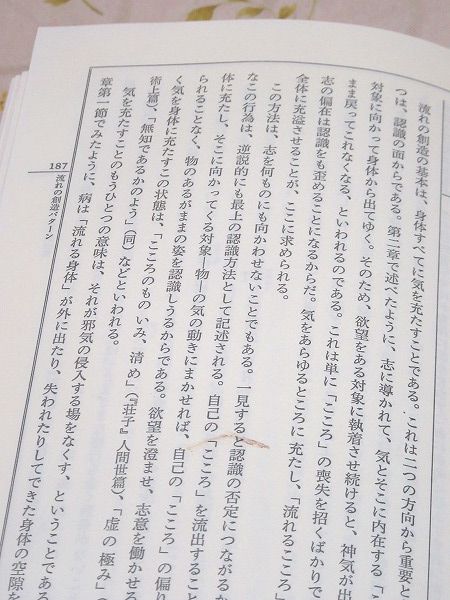 流れの創造の基本は、身体すべてに気を充たすことである。これは二つの方向から重要と
つは、認識の面からである。第二章で述べたように、志に導かれて、気とそこに内在する「こ
対象に向かって身体から出てゆく。そのため、欲望をある対象に執着させ続けると、神気が出
まま戻ってこれなくなる、といわれるのである。これは単に「こころ」の喪失を招くばかりで
志の偏在は認識をも歪めることになるからだ。気をあらゆるところに充たし、「流れるこころ」
全体に充溢させることが、ここに求められる。
この方法は、志を何ものにも向かわせないことでもある。一見すると認識の否定につながるか
なこの行為は、逆説的にも最上の認識方法として記述される。自己の「こころ」を流出すること
体に充たし、そこに向かってくる対象―物―の気の動きにまかせれば、自己の「こころ」の偏り
られることなく、物のあるがままの姿を認識しうるからである。欲望を澄ませ、志意を働かせる
く気を身体に充たすこの状態は、「こころのものいみ、清め」(『荘子』人間世篇)、「虚の極み」
術上篇)、「無知であるかのよう」(同)などといわれる。
気を充たすことのもうひとつの意味は、それが邪気の侵入する場をなくす、ということである
章第一節でみたように、病は「流れる身体」が外に出たり、失われたりしてできた身体の空隙を
187
流れの創造パターン